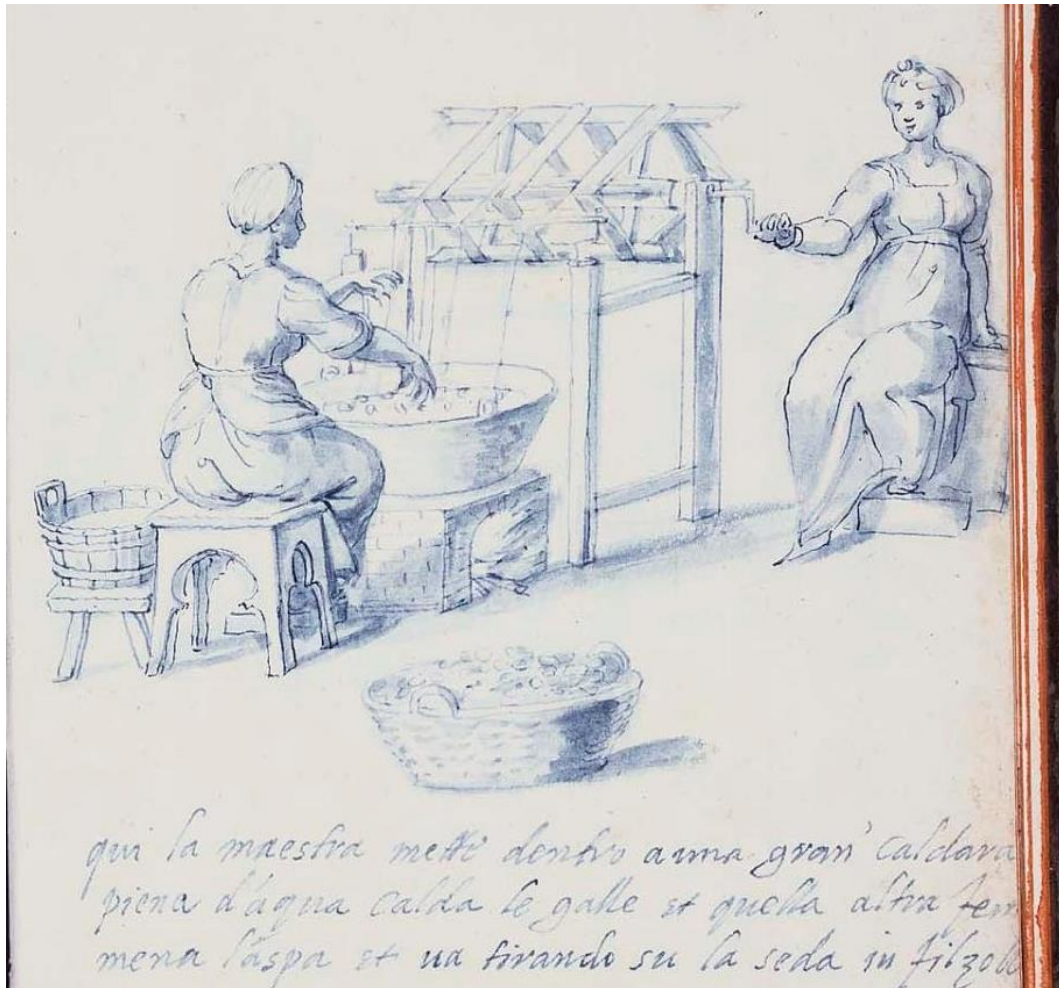 qui la maestra mette dentro a una gran' caldara
piena d'aqua calda le galle et quella altra fem
mena l'aspa et ua tirando su la seda in